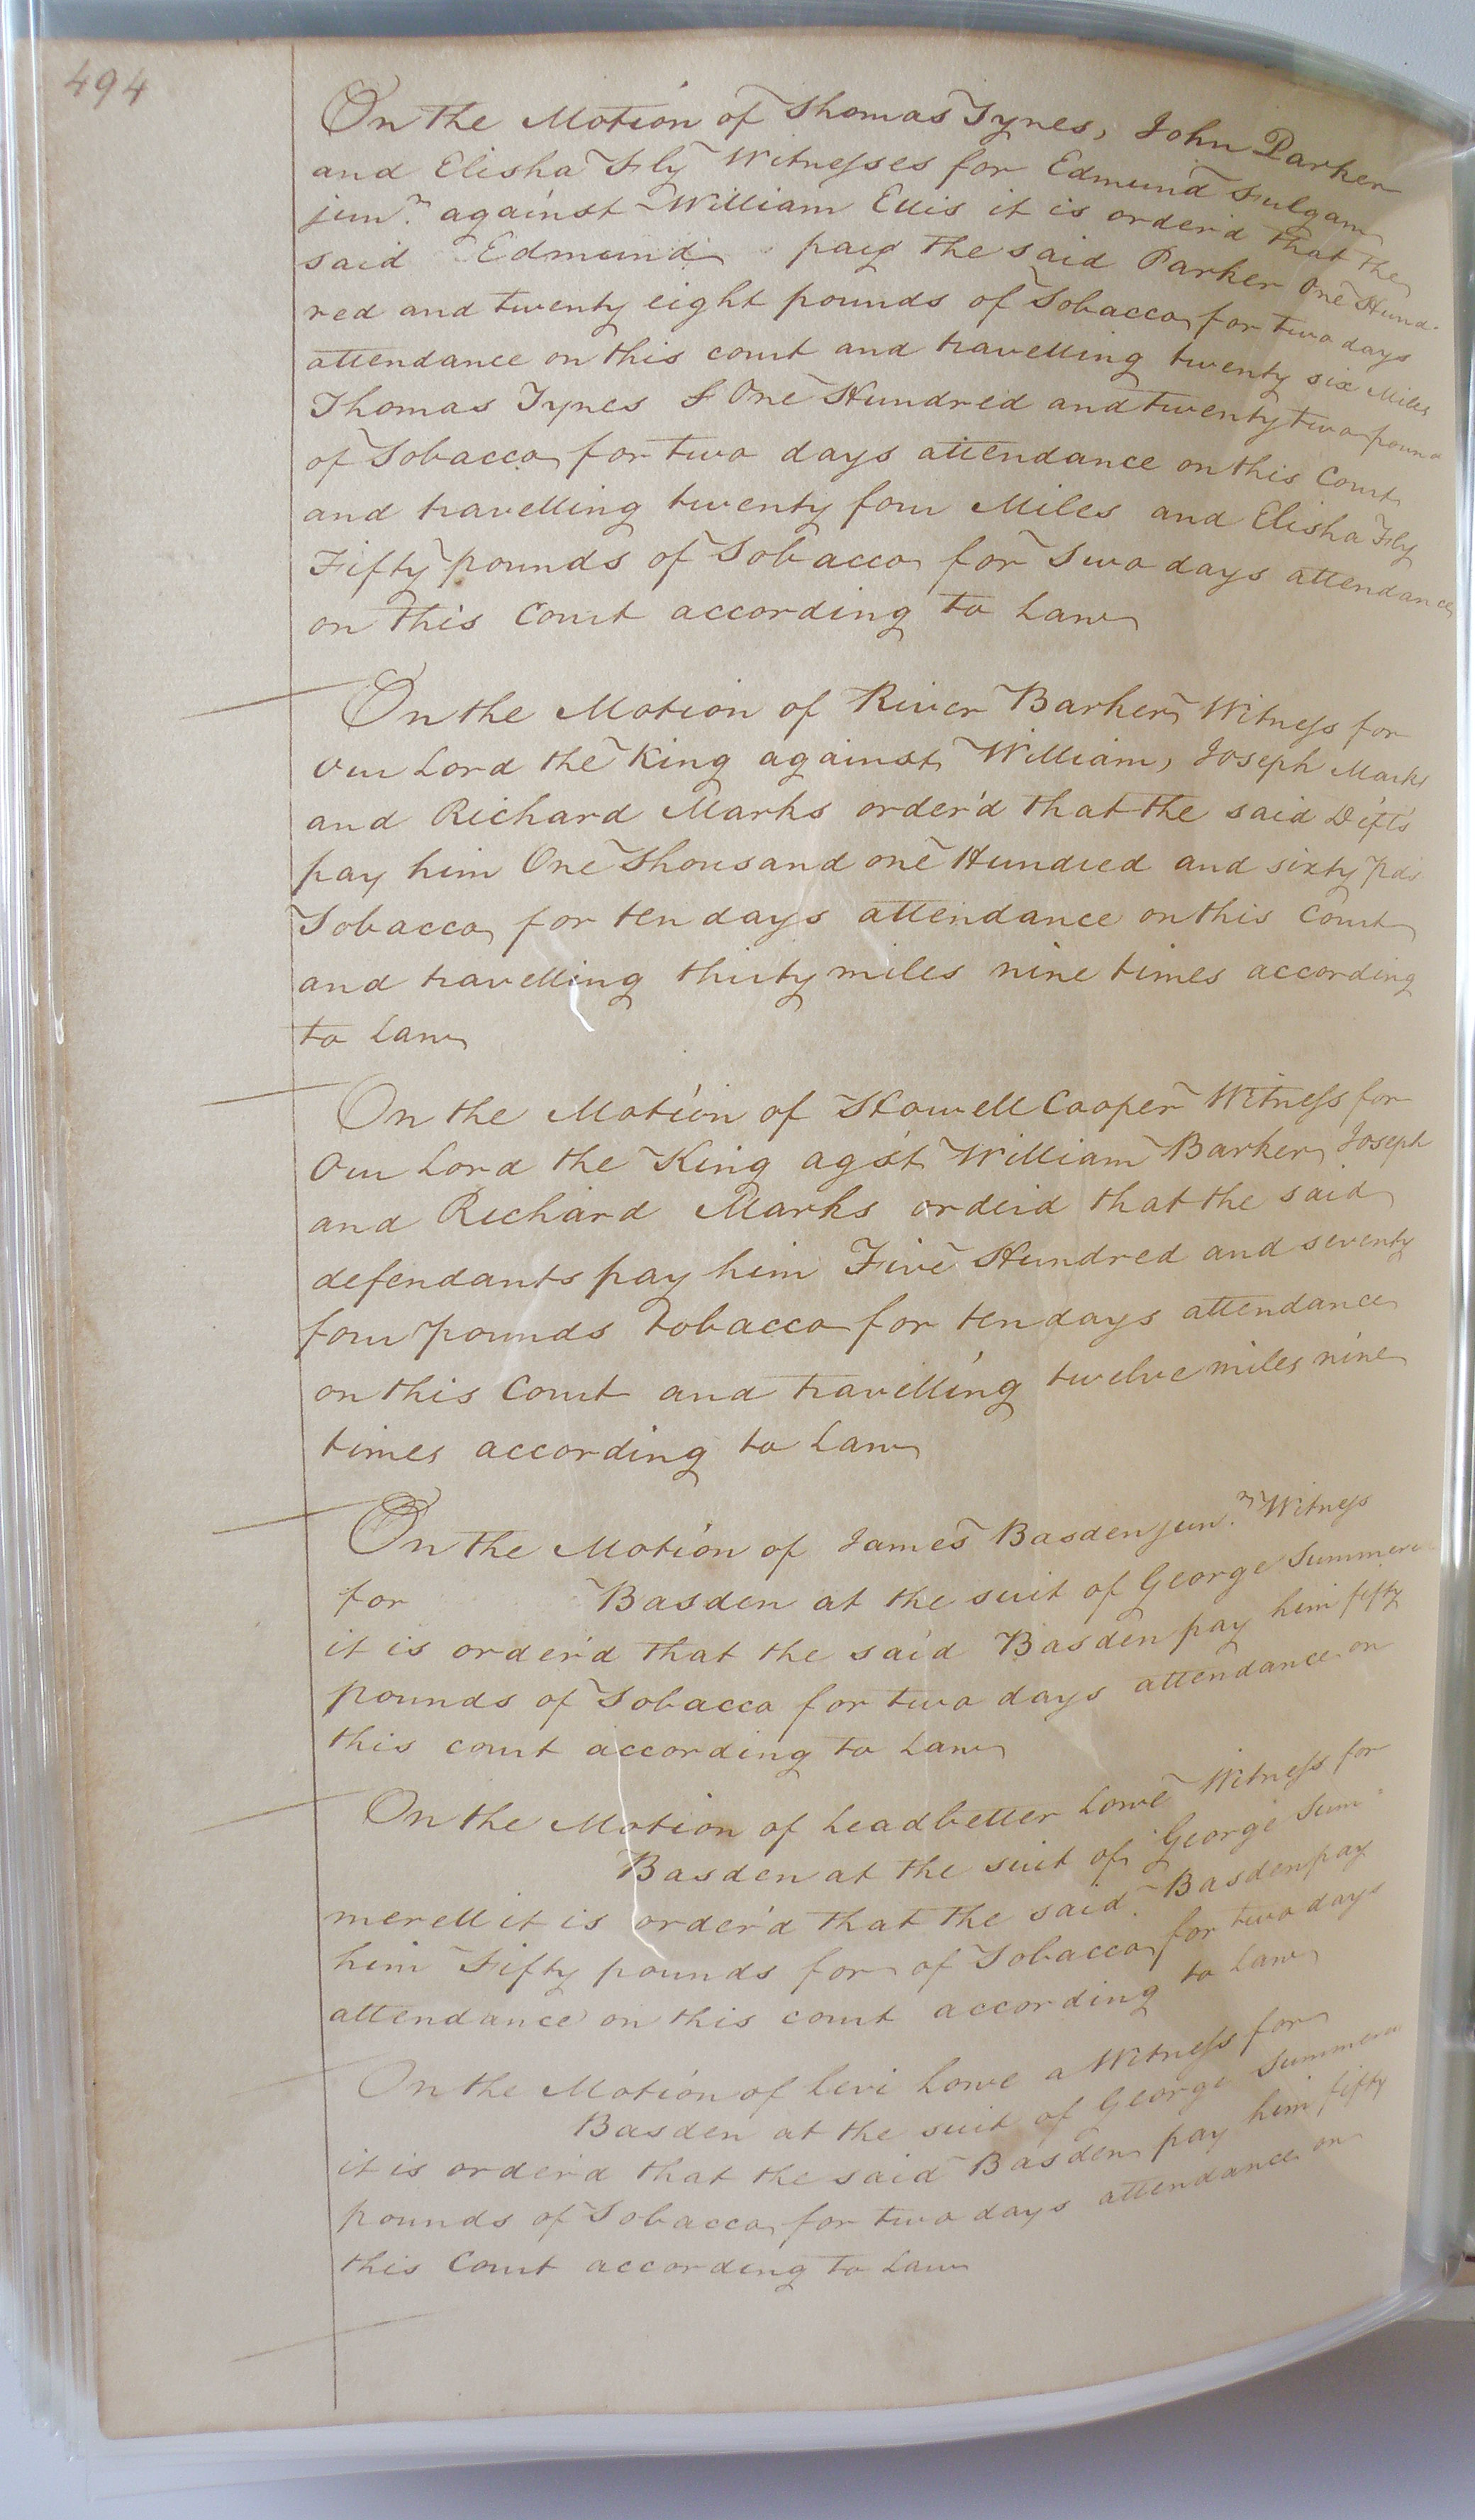 494
On the Motion of Thomas Tynes, John Parker
and Elisha Fly Witnesses for Edmund Fulgam
jun.r against William Ellis it is order'd that the
said Edmund pay the said Parker One Hund
red and twenty eight pounds of Tobacco for two days
attendance on this court and travelling twenty six Miles
Thomas Tynes & One Hundred and twenty two poun
of Tobacco for two days attendance on this Court
and travelling twenty four Miles and Elisha Fly
Fifty pounds of Tobacco for Two days attendance
on this Court according to Law
On the Motion of River Barker Witness for
our Lord the King against William, Joseph Marks
and Richard Marks order'd that the said Defts
pay him One Thousand one Hundred and sixty pds
Tobacco for ten days attendance on this Court
and travelling thirty miles nine times according
to Law
On the Motion of Howell Cooper Witness for
Our Lord the King agst William Barker Joseph
and Richard Marks order'd that the said
defendants pay him Five Hundred and seventy
four pounds tobacco for ten days attendance
on this Court and travelling twelve miles nine
times according to Law
On the Motion of James Basden jun.r Witness
for Basden at the suit of George Summerell
it is order'd that the said Basden pay him fifty
pounds of Tobacco for two days attendance on
this court according to Law
On the Motion of Leadbetter Lowe Witness for
Basden at the suit of George Sum
merell it is order'd that the said Basden pay
him Fifty pounds for of Tobacco for two days
attendance on this court according to Law
On the Motion of Levi Lowe a Witness for
Basden at the suit of George Summerell
it is order'd that the said Basden pay him fifty
pounds of Tobacco for two days attendance on
this Court according to Law